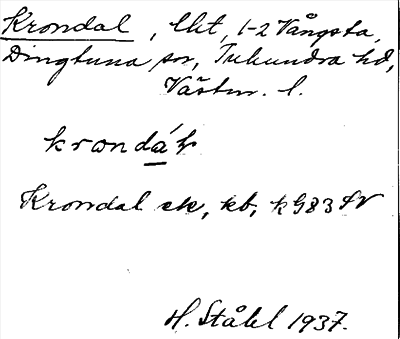 Krondal, lht, 1-2 Vångsta,
Dingtuna sn, Tuhundra hd,
Västm. l.
krondáɫ
Krondal ek, kb, k G83 SV
H. Ståhl 1937.